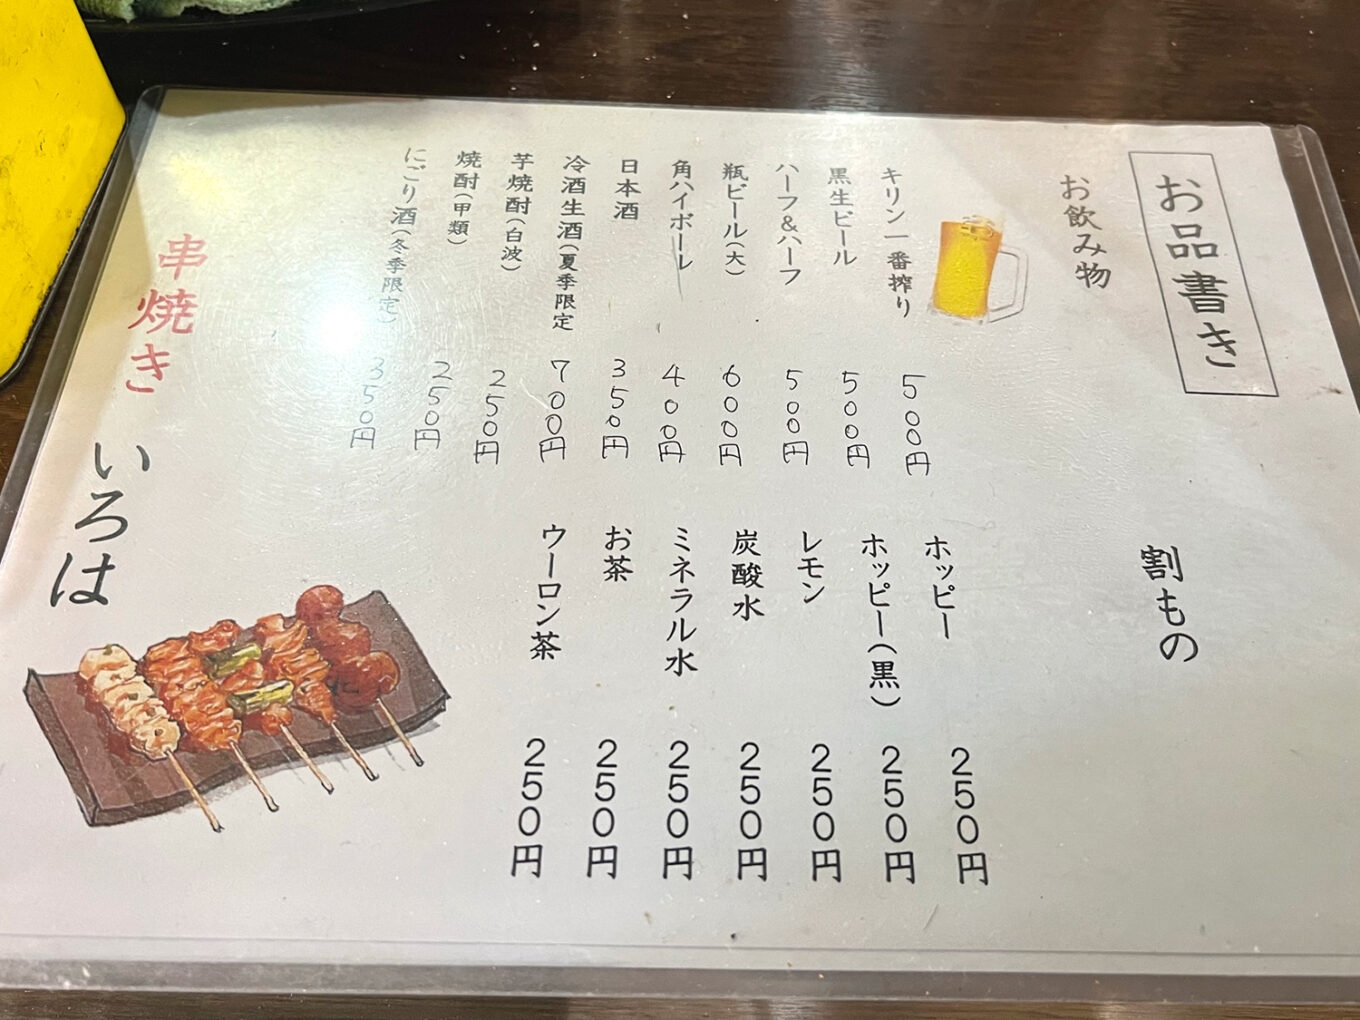 お品書き
お飲み物
キリン一番搾り 500円
黒生ビール 500円
ハーフ&ハーフ 500円
瓶ビール(大) 600円
角ハイボール 400円
日本酒 350円
冷酒生酒(夏季限定 700円
芋焼酎(白波) 250円
焼酎(甲類) 250円
にごり酒(冬季限定) 350円
割もの
ホッピー 250円
ホッピー(黒) 250円
レモン 250円
炭酸水 250円
ミネラル水 250円
お茶 250円
ウーロン茶 250円
串焼き いろは